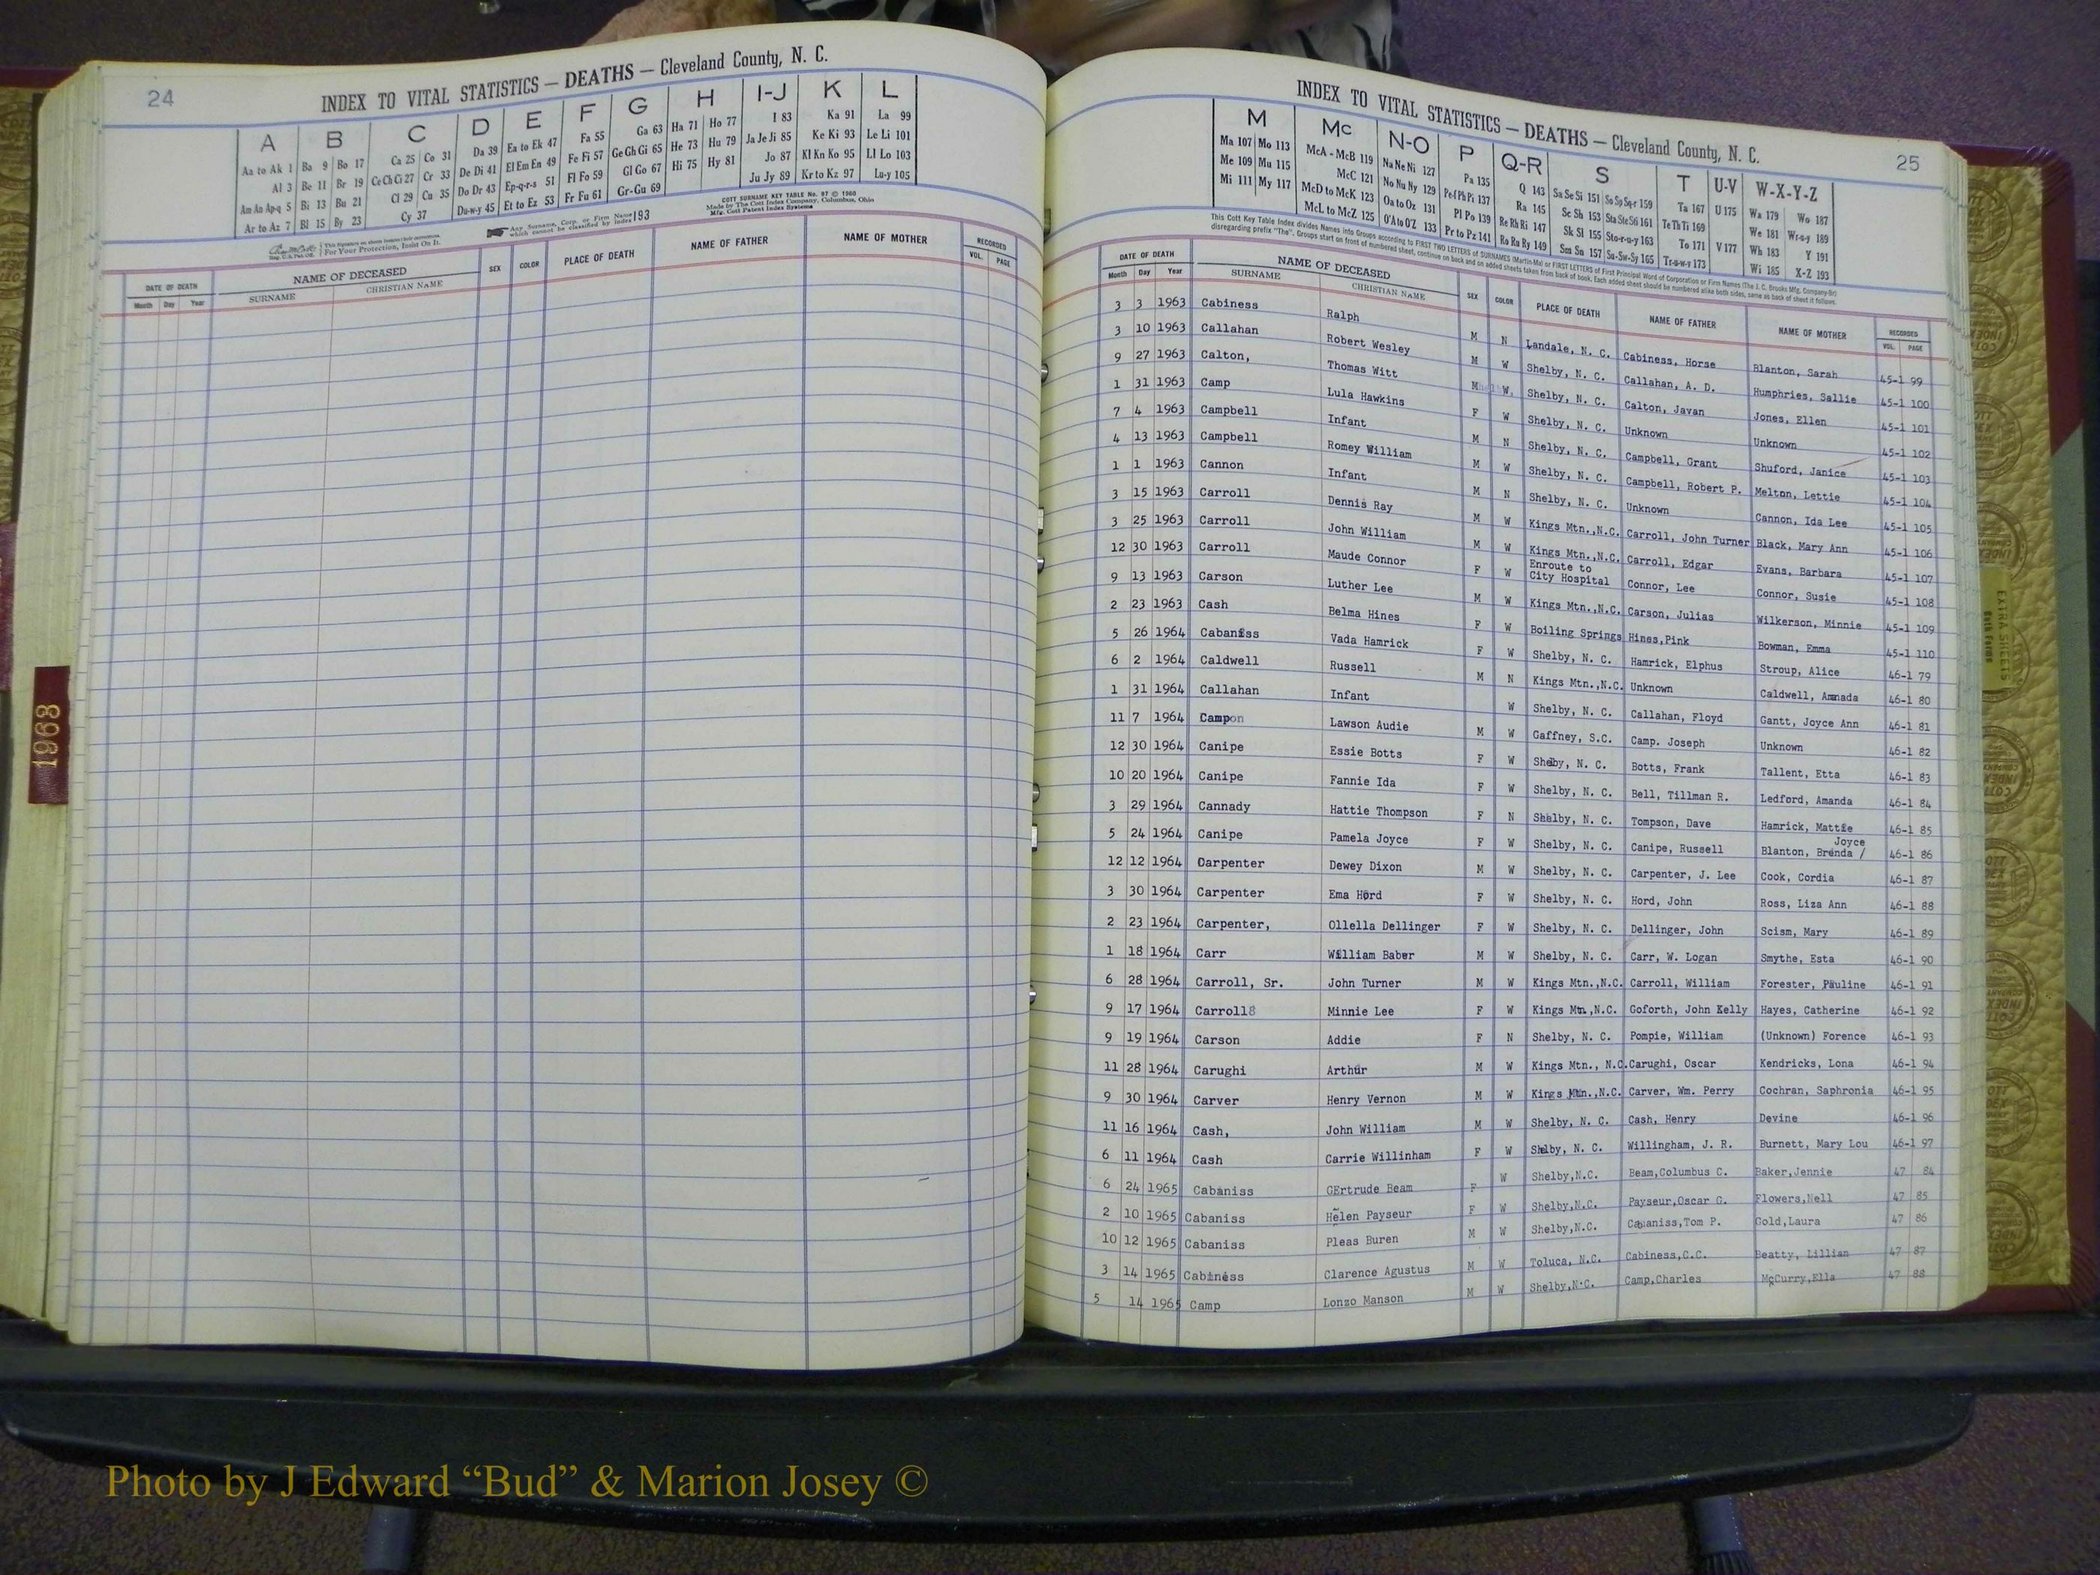 24
INDEX TO VITAL STATISTICS — DEATHS — Cleveland County, N. C.
A B C D E F G H I-J K L
Aa to Ak 1 Ba 9 Bo 17 Ca 25 Co 31 Da 39 Ea to Ek 47 Fa 55 Ga 63 Ha 71 Ho 77 I 83 Ka 91 La 99
Al 3 Be 11 Br 19 Ce Ch Ci 27 Cr 33 De Di 41 El Em En 49 Fe Fi 57 Ge Gh Gi 65 He 73 Hu 79 Ja Je Ji 85 Ke Ki 93 Le Li 101
Am An Ap-q 5 Bi 13 Bu 21 Cl 29 Cu 35 Do Dr 43 Ep-q-r-s 51 Fl Fo 59 Gl Go 67 Hi 75 Hy 81 Jo 87 Kl Kn Ko 95 Ll Lo 103
Ar to Az 7 Bl 15 By 23 Cy 37 Du-w-y 45 Et to Ez 53 Fr Fu 61 Gr-Gu 69 Ju Jy 89 Kr to Kz 97 Lu-y 105
For Your Protection, Insist On It.
Any Surname, Corp. or Firm Name which cannot be classified by Index 193
COTT SURNAME KEY TABLE No. 97 © 1960
Made by The Cott Index Company, Columbus, Ohio
Mfg. Cott Patent Index Systems
DATE OF DEATH NAME OF DECEASED SEX COLOR PLACE OF DEATH NAME OF FATHER NAME OF MOTHER RECORDED
Month Day Year SURNAME CHRISTIAN NAME VOL. PAGE
1968
25
INDEX TO VITAL STATISTICS — DEATHS — Cleveland County, N. C.
M Mc N-O P Q-R S T U-V W-X-Y-Z
Ma 107 Mo 113 McA - McB 119 Na Ne Ni 127 Pa 135 Q 143 Sa Se Si 151 So Sp Sq-r 159 Ta 167 U 175 Wa 179 Wo 187
Me 109 Mu 115 McC 121 No Nu Ny 129 Pe-f Ph Pi 137 Ra 145 Sc Sh 153 Sta Ste Sti 161 Te Th Ti 169 We 181 Wr-u-y 189
Mi 111 My 117 McD to McK 123 Oa to Oz 131 Pl Po 139 Re Rh Ri 147 Sk Sl 155 Sto-r-u-y 163 To 171 V 177 Wh 183 Y 191
McL to McZ 125 O'A to O'Z 133 Pr to Pz 141 Ro Ru Ry 149 Sm Sn 157 Su-Sw-Sy 165 Tr-u-w-y 173 Wi 185 X-Z 193
This Cott Key Table Index divides Names into Groups according to FIRST TWO LETTERS of SURNAMES (Martin-Ma) or FIRST LETTERS of First Principal Word of Corporation or Firm Names (The J. C. Brooks Mfg. Company-Br)
disregarding prefix "The". Groups start on front of numbered sheet, continue on back and on added sheets taken from back of book. Each added sheet should be numbered alike both sides, same as back of sheet it follows.
DATE OF DEATH NAME OF DECEASED SEX COLOR PLACE OF DEATH NAME OF FATHER NAME OF MOTHER RECORDED
Month Day Year SURNAME CHRISTIAN NAME VOL. PAGE
3 3 1963 Cabiness Ralph M N Landale, N. C. Cabiness, Horse Blanton, Sarah 45-1 99
3 10 1963 Callahan Robert Wesley M W Shelby, N. C. Callahan, A. D. Humphries, Sallie 45-1 100
9 27 1963 Calton, Thomas Witt M W Shelby, N. C. Calton, Javan Jones, Ellen 45-1 101
1 31 1963 Camp Lula Hawkins F W Shelby, N. C. Unknown Unknown 45-1 102
7 4 1963 Campbell Infant M N Shelby, N. C. Campbell, Grant Shuford, Janice 45-1 103
4 13 1963 Campbell Romey William M W Shelby, N. C. Campbell, Robert P. Melton, Lettie 45-1 104
1 1 1963 Cannon Infant M N Shelby, N. C. Unknown Cannon, Ida Lee 45-1 105
3 15 1963 Carroll Dennis Ray M W Kings Mtn.,N.C. Carroll, John Turner Black, Mary Ann 45-1 106
3 25 1963 Carroll John William M W Kings Mtn.,N.C. Carroll, Edgar Evans, Barbara 45-1 107
12 30 1963 Carroll Maude Connor F W Enroute to City Hospital Connor, Lee Connor, Susie 45-1 108
9 13 1963 Carson Luther Lee M W Kings Mtn.,N.C. Carson, Julias Wilkerson, Minnie 45-1 109
2 23 1963 Cash Belma Hines F W Boiling Springs Hines,Pink Bowman, Emma 45-1 110
5 26 1964 Cabaniss Vada Hamrick F W Shelby, N. C. Hamrick, Elphus Stroup, Alice 46-1 79
6 2 1964 Caldwell Russell M N Kings Mtn.,N.C. Unknown Caldwell, Amanada 46-1 80
1 31 1964 Callahan Infant W Shelby, N. C. Callahan, Floyd Gantt, Joyce Ann 46-1 81
11 7 1964 Camp Lawson Audie M W Gaffney, S.C. Camp. Joseph Unknown 46-1 82
12 30 1964 Canipe Essie Botts F W Shelby, N. C. Botts, Frank Tallent, Etta 46-1 83
10 20 1964 Canipe Fannie Ida F W Shelby, N. C. Bell, Tillman R. Ledford, Amanda 46-1 84
3 29 1964 Cannady Hattie Thompson F N Shelby, N. C. Tompson, Dave Hamrick, Mattie 46-1 85
5 24 1964 Canipe Pamela Joyce F W Shelby, N. C. Canipe, Russell Blanton, Brenda / Joyce 46-1 86
12 12 1964 Carpenter Dewey Dixon M W Shelby, N. C. Carpenter, J. Lee Cook, Cordia 46-1 87
3 30 1964 Carpenter Ema Hord F W Shelby, N. C. Hord, John Ross, Liza Ann 46-1 88
2 23 1964 Carpenter, Ollella Dellinger F W Shelby, N. C. Dellinger, John Scism, Mary 46-1 89
1 18 1964 Carr William Baber M W Shelby, N. C. Carr, W. Logan Smythe, Esta 46-1 90
6 28 1964 Carroll, Sr. John Turner M W Kings Mtn.,N.C. Carroll, William Forester, Pauline 46-1 91
9 17 1964 Carroll Minnie Lee F W Kings Mtn.,N.C. Goforth, John Kelly Hayes, Catherine 46-1 92
9 19 1964 Carson Addie F N Shelby, N. C. Pompie, William (Unknown) Forence 46-1 93
11 28 1964 Carughi Arthur M W Kings Mtn., N.C. Carughi, Oscar Kendricks, Lona 46-1 94
9 30 1964 Carver Henry Vernon M W Kings Mtn.,N.C. Carver, Wm. Perry Cochran, Saphronia 46-1 95
11 16 1964 Cash, John William M W Shelby, N. C. Cash, Henry Devine 46-1 96
6 11 1964 Cash Carrie Willinham F W Shelby, N. C. Willingham, J. R. Burnett, Mary Lou 46-1 97
6 24 1965 Cabaniss GErtrude Beam F W Shelby,N.C. Beam,Columbus C. Baker,Jennie 47 84
2 10 1965 Cabaniss Helen Payseur F W Shelby,N.C. Payseur,Oscar G. Flowers,Nell 47 85
10 12 1965 Cabaniss Pleas Buren M W Shelby,N.C. Cabaniss,Tom P. Gold,Laura 47 86
3 14 1965 Cabiness Clarence Agustus M W Toluca, N.C. Cabiness,C.C. Beatty, Lillian 47 87
5 14 1965 Camp Lonzo Manson M W Shelby,N.C. Camp,Charles McCurry,Ella 47 88
EXTRA SHEETS
Photo by J Edward “Bud” & Marion Josey ©